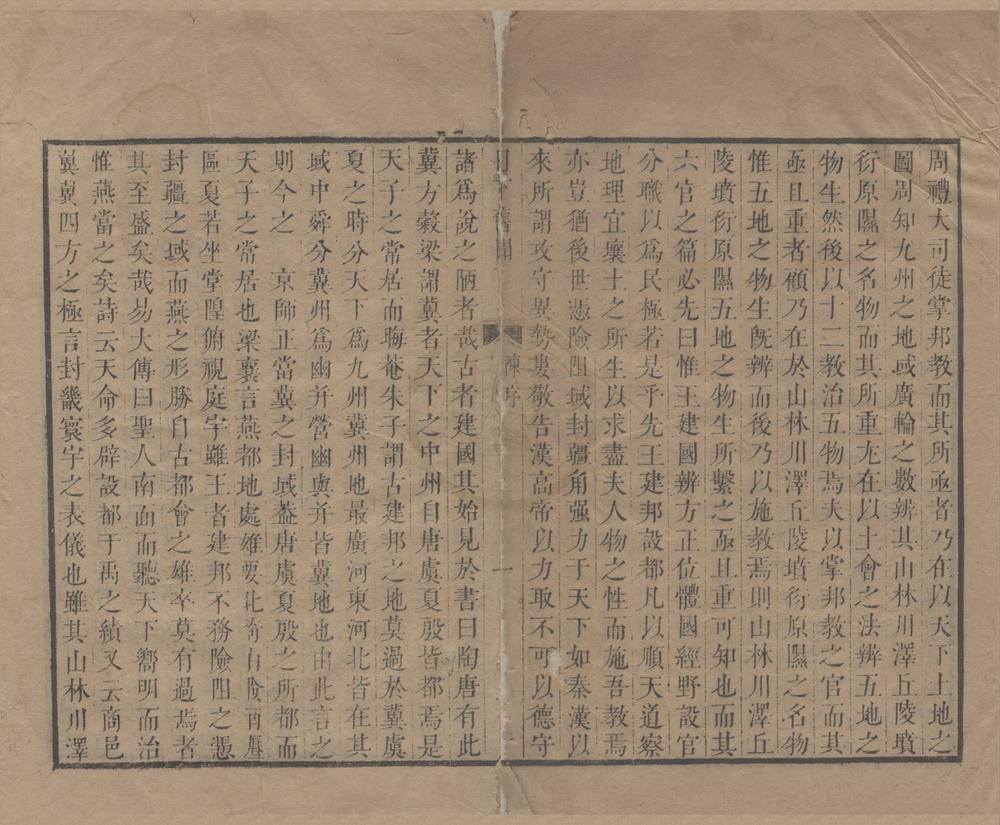 周禮大司徒掌邦教而其所亟者乃在以天下土地之
圖周知九州之地域廣輪之數辨其山林川澤丘陵墳
衍原隰之名物而其所重尤在以土會之法辨五地之
物生然後以十二教治五物焉夫以掌邦教之官而其
亟且重者顧乃在於山林川澤丘陵墳衍原隰之名物
惟五地之物生旣辨而後乃以施教焉則山林川澤丘
陵墳衍原隰五地之物生所繫之亟且重可知也而其
六官之篇必先曰惟王建國辨方正位體國經野設官
分職以為民極若是乎先王建邦設都凡以順天道察
地理宜壤土之所生以求盡夫人物之性而施吾教焉
亦豈猶後世憑險阻域封疆角强力于天下如秦漢以
來所謂攻守異勢婁敬告漢高帝以力取不可以德守
舊聞
陳序
一
諸爲說之陋者哉古者建國其始見於書曰陶唐有此
冀方穀梁謂冀者天下之中州自唐虞夏殷皆都焉是
天子之常居而晦菴朱子謂古建邦之地莫過於冀虞
夏之時分天下爲九州冀州地最廣河東河北皆在其
域中舜分冀州爲幽并營幽與并皆冀地也由此言之
則今之 京師正當冀之封域蓋唐虞夏殷之所都而
天子之常居也梁襄言燕都地處雄要北倚山險南壓
區夏若坐堂隍俯視庭宇雖王者建邦不務險阻之憑
封疆之域而燕之形勝自古都會之雄卒莫有過焉者
其至盛矣哉易大傳曰聖人南面而聽天下嚮明而治
惟燕當之矣詩云天命多辟設都于禹之績又云商邑
翼翼四方之極言封畿寰宇之表儀也雖其山林川澤